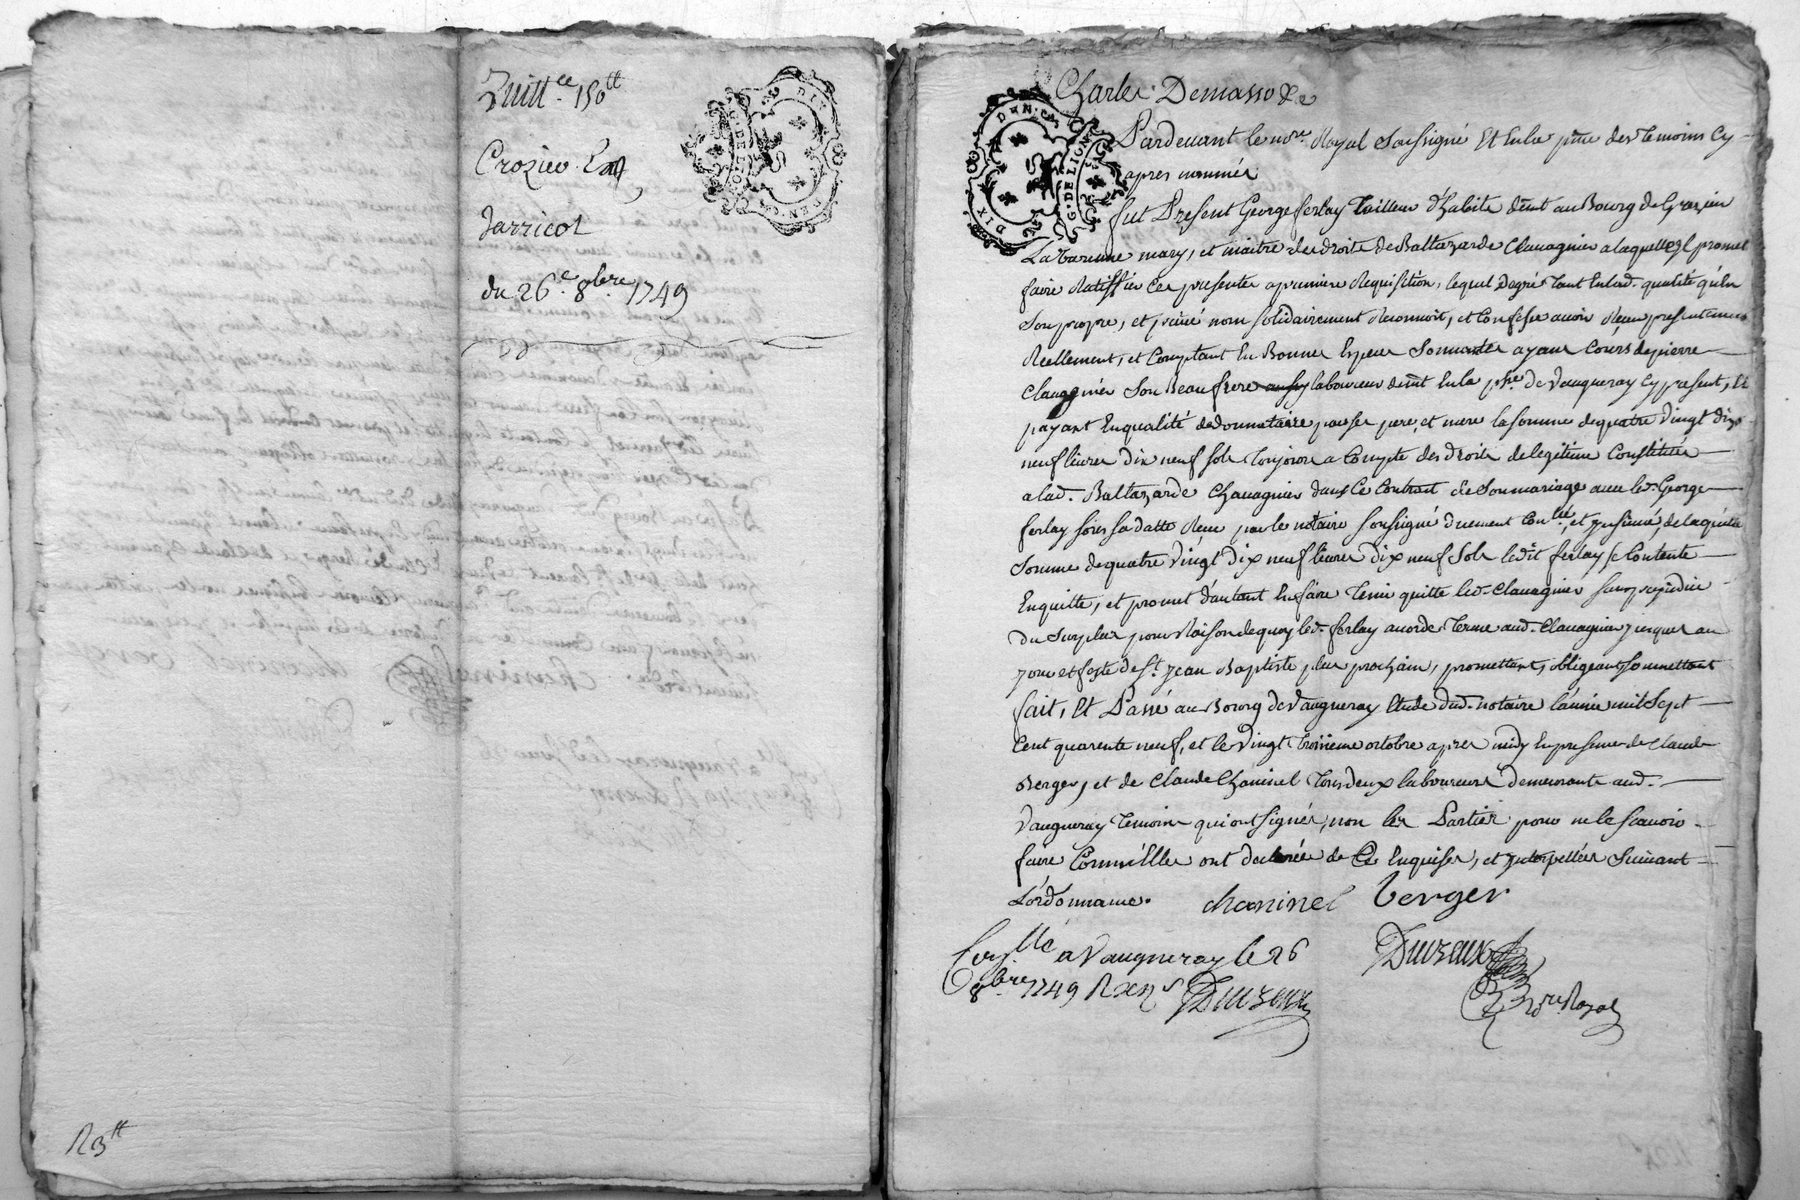 Quitt.ce 150 tt
Crozier
Jarricot
du 26.e 8bre 1749
R 3 tt
DIX DEN.ERS
G. DE LION
Charles Demasso &a
Pardevant le no.re Royal Soussigné Et En la p.nce des temoins Cy
apres nommés
fut Present George ferlay tailleur d'habits dem.t au Bourg de Grezieu
La Varenne mary, et maitre des droits de Baltazarde Chavagnier a laquelle il promet
faire Ratiffier Ces presentes a premiere Requisition, lequel degré tant En lad. qualité qu'En
Son propre, et privé nom solidairement Reconnoit, et Confesse avoir Reçeu presentement
Reellement, et Comptant En Bonnes Especes Sonnantes ayant Cours de pierre
Chavagnier Son Beaufrere laboureur dem.t En la p.sse de Vaugneray Cy present, Et
payant En qualité de donnataire de ses pere, et mere la somme de quatre Vingt dix
neuf livres dix neuf sols a Compte des droits de legitime Constitués
a lad. Baltazarde Chavagnier dans Ce Contrat de Son mariage avec led. George
ferlay sous sa datte Receu par le notaire soussigné duement Con.llé, et Insinué, de laquelle
Somme de quatre Vingt dix neuf livres dix neuf Sols ledit ferlay se Contente
En quitte, et promet d'autant En faire tenir quitte led. Chavagnier sans prejudice
du Surplus pour Raison de quoy led. ferlay accorde terme aud. Chavagnier jusques au
jour et feste de S.t Jean Baptiste plus prochain, promettant, obligeant soumettant
fait, Et Passé au Bourg de Vaugneray Etude dud. notaire l'année mil Sept
Cent quarente neuf, et le Vingt troisieme octobre apres midy En presence de Claude
Berger, et de Claude Chaninel tous deux laboureurs demeurants aud.
Vaugneray temoins qui ont signés, non les Parties pour ne le scavoir
faire Comm'Elles ont declarée de Ce Enquises, et Interpellées Suivant
L'ordonnance. chaninel berger
Con.llé a Vaugneray le 26 Duzeux
8bre 1749 R Duzeux no.re Royal